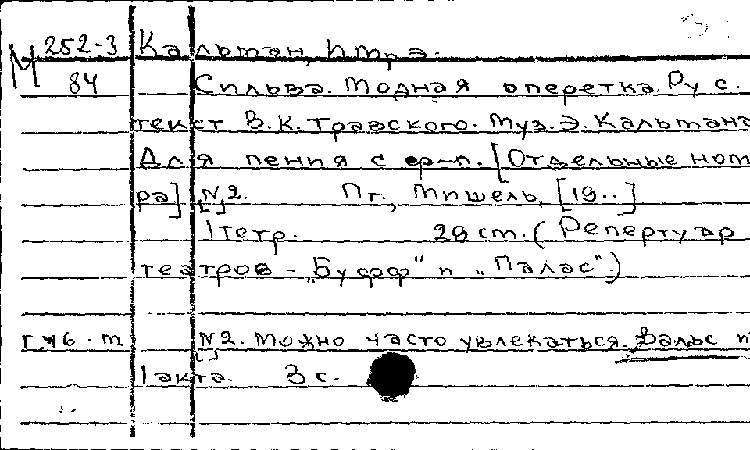 М 252-3 Кальман, Имрэ.
84 Сильва. Модная оперетка. Рус.
текст В.К. Травского. Муз. Э. Кальмана
Для пения с ф-п. [Отдельные номе
ра] №2. Пг., Мишель, [19..]
1 тетр. 29 см. (Репертуар
театров „Буфф" и „Палас".)
№2. Можно часто увлекаться. Вальс из
1 акта. 3 с.